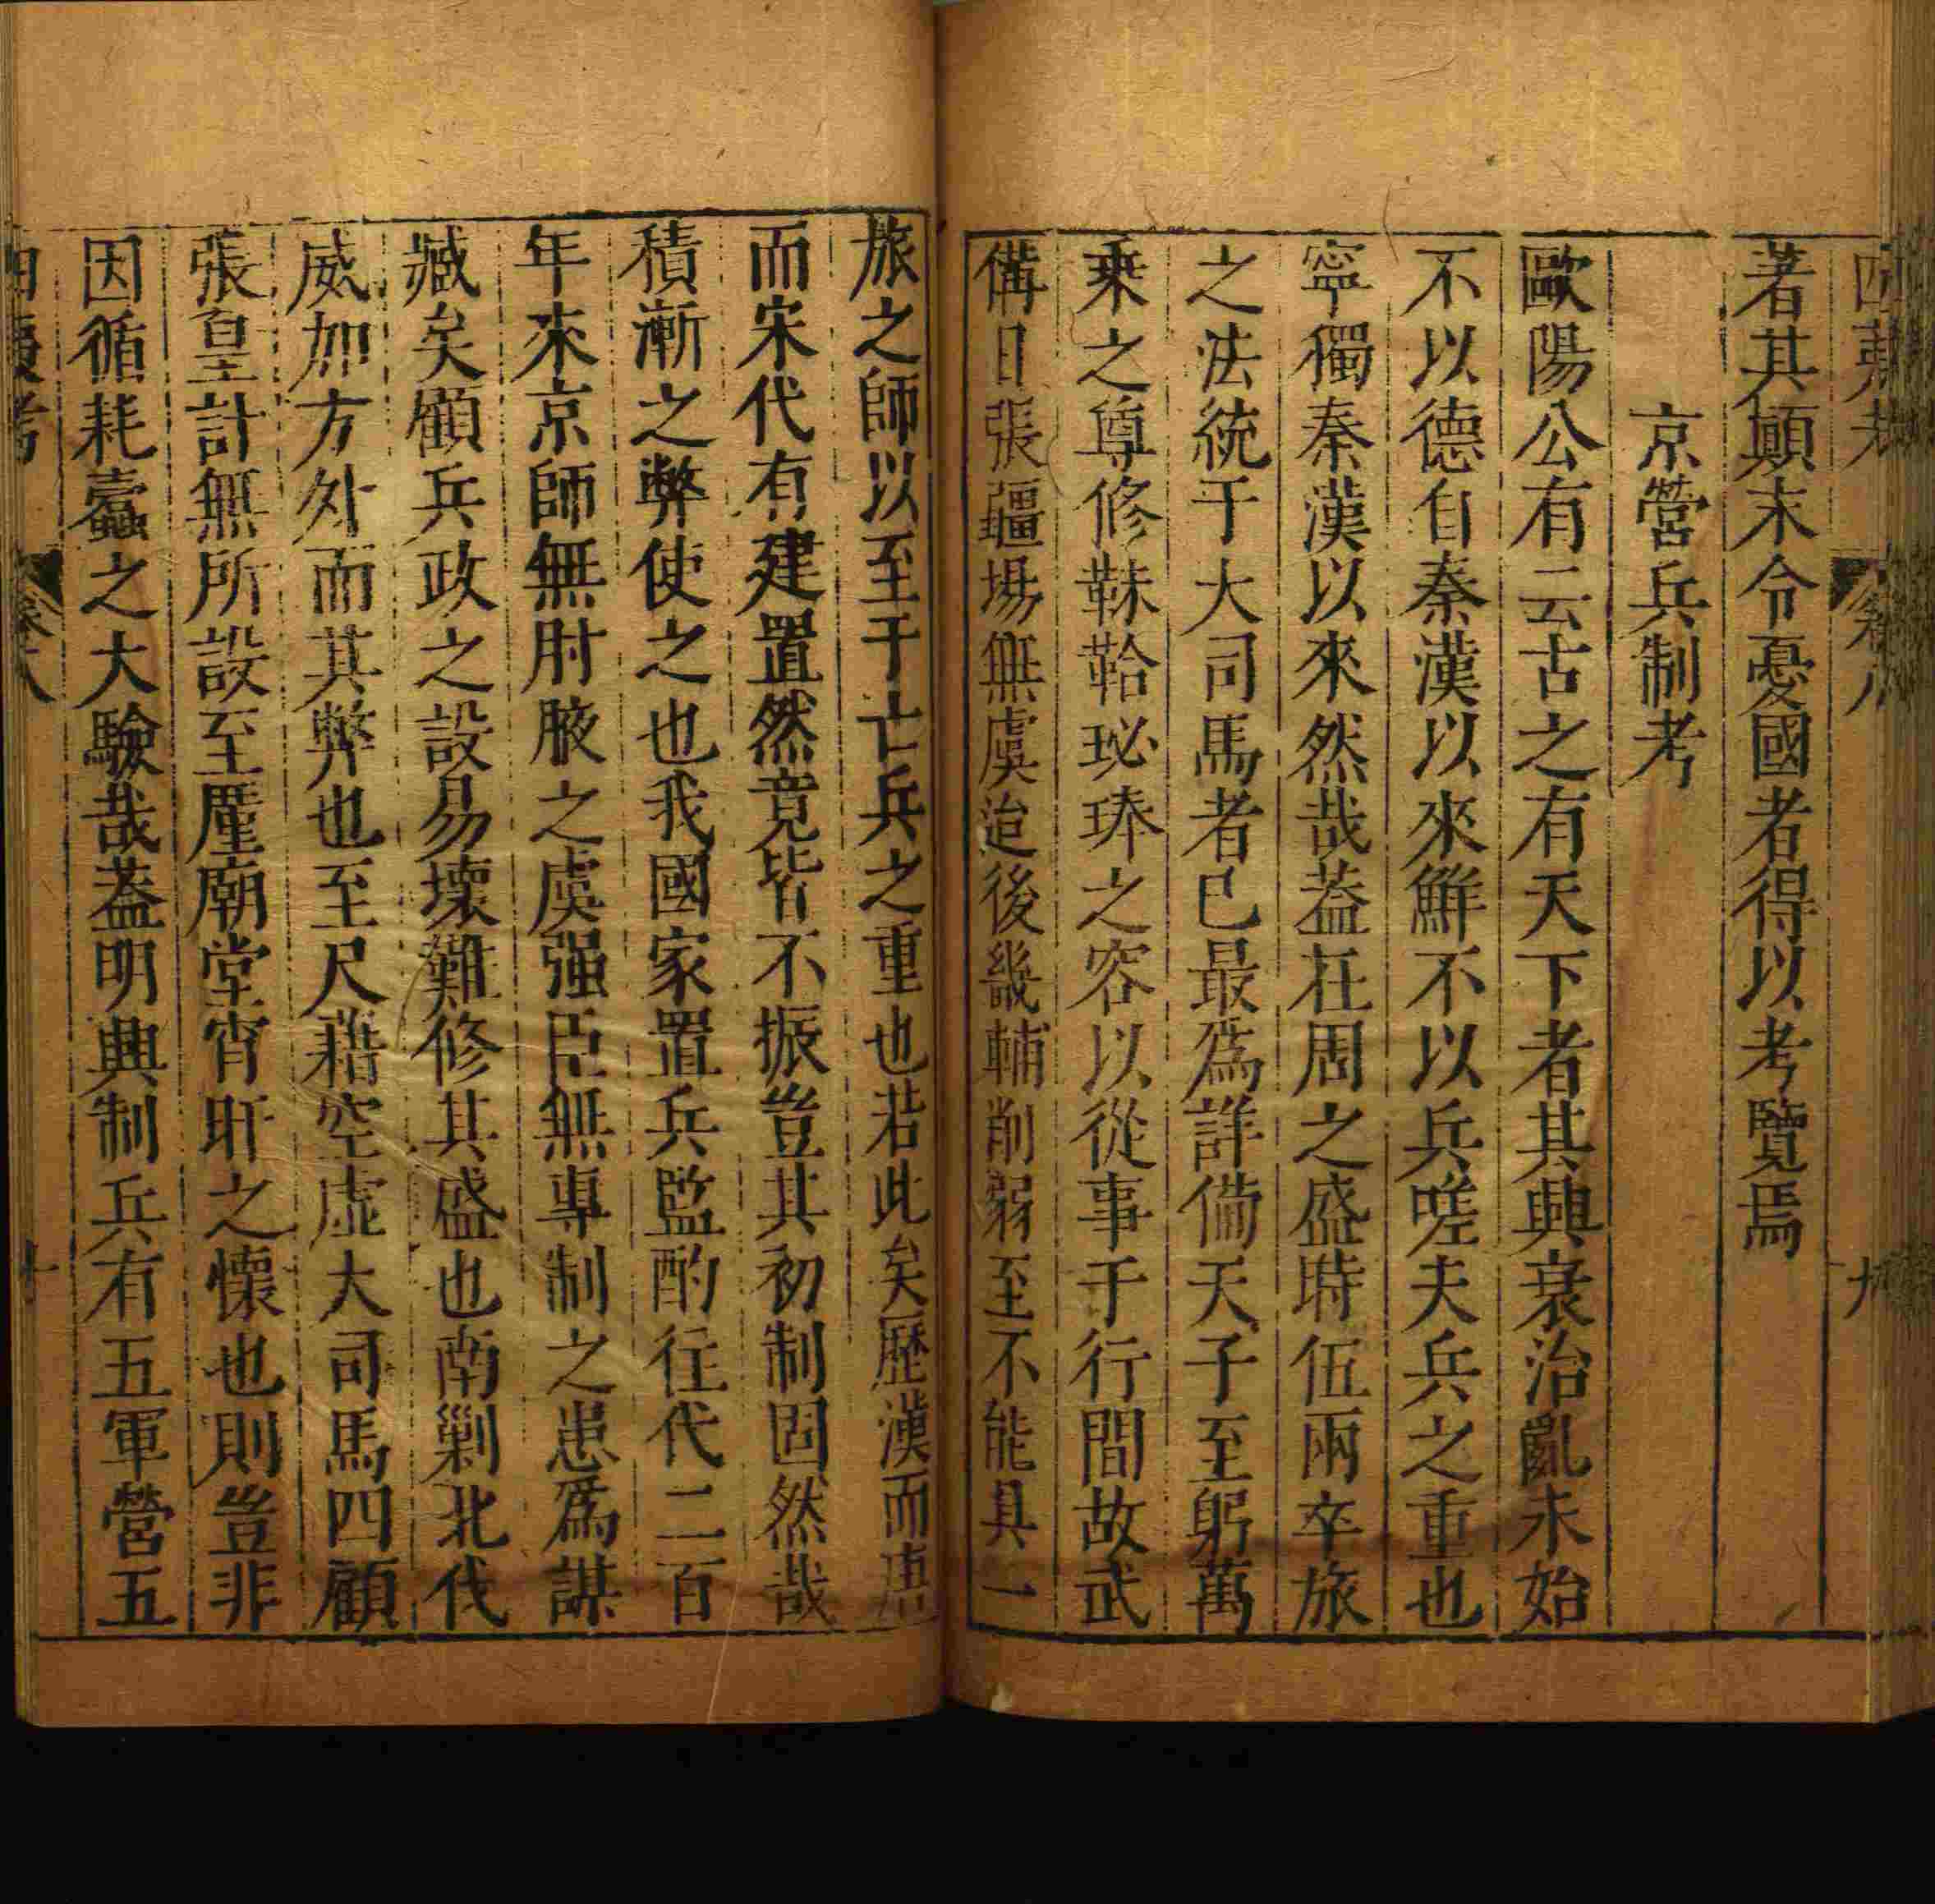 四夷考 卷八 九
著其顛末令憂國者得以考覽焉
京營兵制考
歐陽公有云古之有天下者其興衰治亂未始
不以德自秦漢以來鮮不以兵嗟夫兵之重也
寧獨秦漢以來然哉葢在周之盛時伍兩卒旅
之法統于大司馬者已最爲詳備天子至躬萬
乘之尊修靺鞈珌琫之容以從事于行間故武
備日張疆場無虞迨後畿輔削弱至不能具一
旅之師以至于亡兵之重也若此矣歷漢而唐
而宋代有建置然竟皆不振豈其初制固然哉
積漸之弊使之也我國家置兵監酌往代二百
年來京師無肘腋之虞强臣無專制之患爲謀
臧矣顧兵政之設易壞難修其盛也南剿北伐
威加方外而其弊也至尺藉空虛大司馬四顧
張皇計無所設至厪廟堂宵旰之懷也則豈非
因循耗蠹之大驗哉葢明興制兵有五軍營五
四夷考 卷八 十